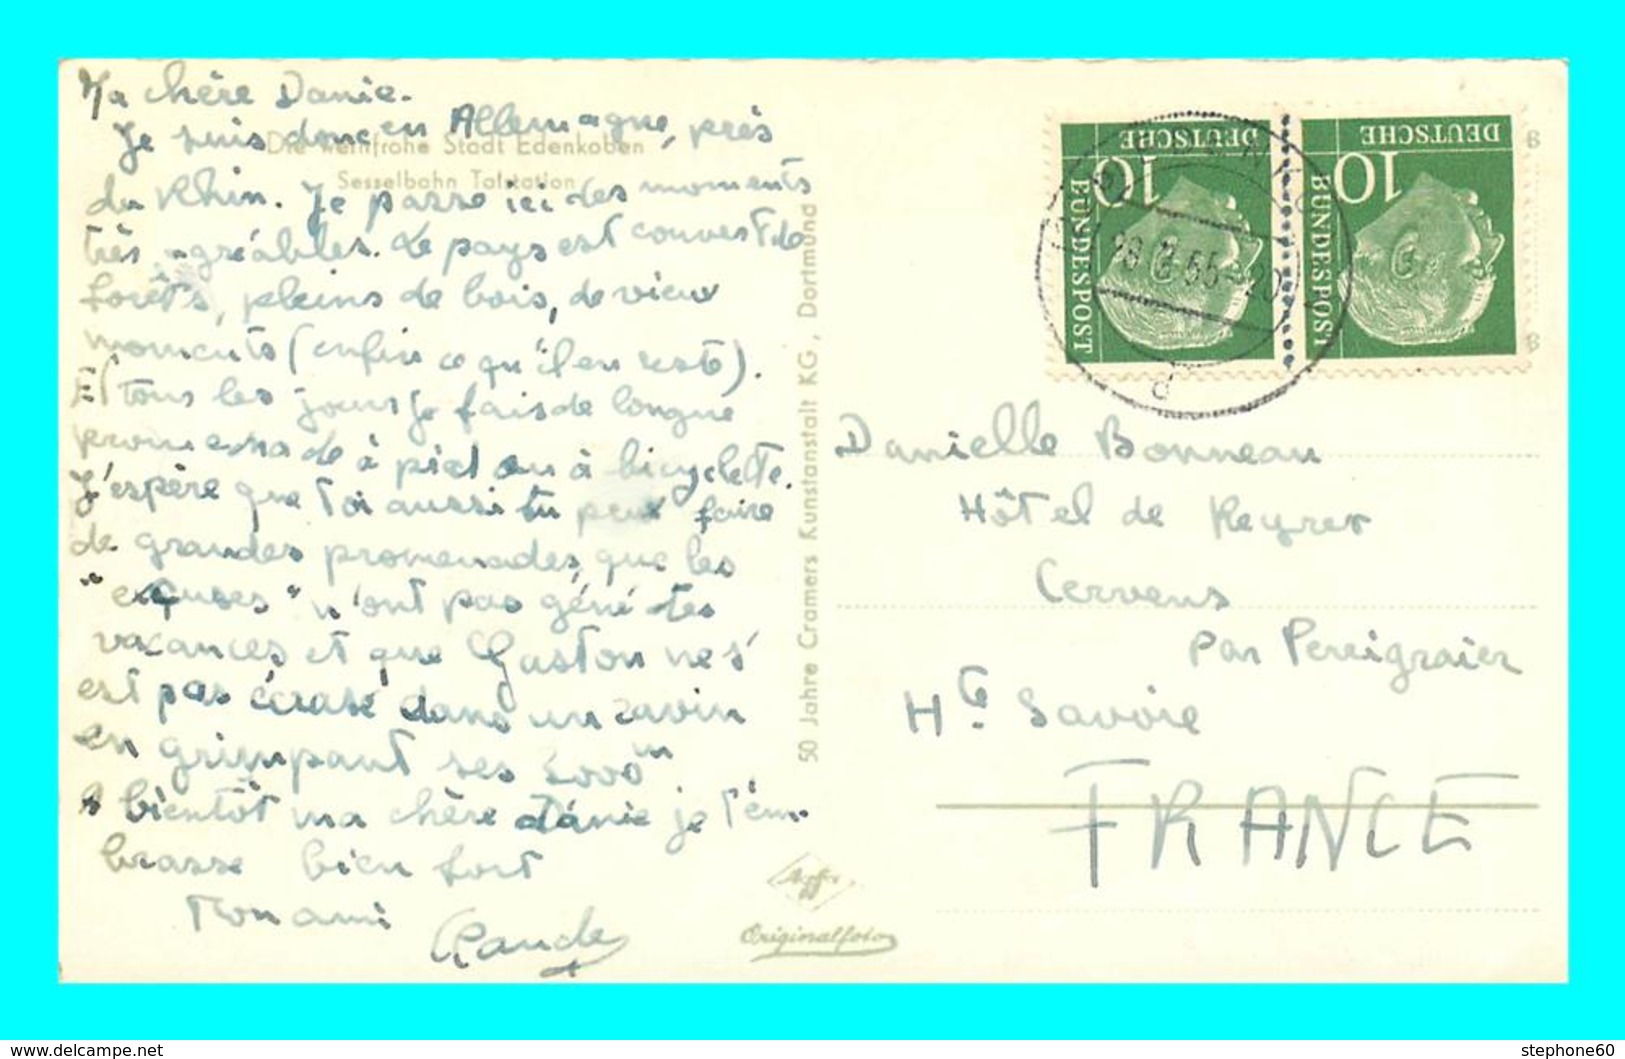 Ma chère Danie.
Je suis donc en Allemagne, près
Die weinfrohe Stadt Edenkoben
Sesselbahn Talstation
du Rhin. Je passe ici des moments
très agréables. Le pays est couvert de
forêts, pleins de bois, de vieux
moments (enfin ce qu'il en reste).
Et tous les jours je fais de longue
promenade à pied ou à bicyclette.
J'espère que toi aussi tu peux faire
de grandes promenades, que les
" " n'ont pas gêné tes
vacances et que Gaston ne s'
est pas écrasé dans un ravin
en grimpant ses 3000 m
A bientôt ma chère Danie je t'em-
brasse bien fort
Ton ami
Claude
50 Jahre Cramers Kunstanstalt KG., Dortmund
Agfa
Originalfoto
DEUTSCHE
BUNDESPOST
10
DEUTSCHE
BUNDESPOST
10
55-20
d
Danielle Bonneau
Hôtel de
Cervens
par Perrignier
Hte Savoie
FRANCE
stephone60